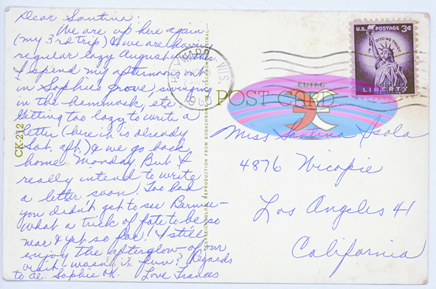 Dear Santina:
We are up here again
(my 3rd trip) & we are having
regular lazy August weather.
I spend my afternoons out
in Sophie's grove, swinging
in the hammock, etc.
Getting too lazy to write a
letter (here it is already
Sat. aft.) & we go back
home Monday. But I
really intend to write
a letter soon. Too bad
you didn't get to see Bernice–
What a trick of fate to be so
near & yet so far! I still
enjoy the afterglow of our
visit – wasn't it fun? Regards
to Al. Sophie ok. Love Frances
CK-212
POST CARD
U.S. POSTAGE 3¢
LIBERTY
Miss Santina
4876 Nicopie
Los Angeles 41
California